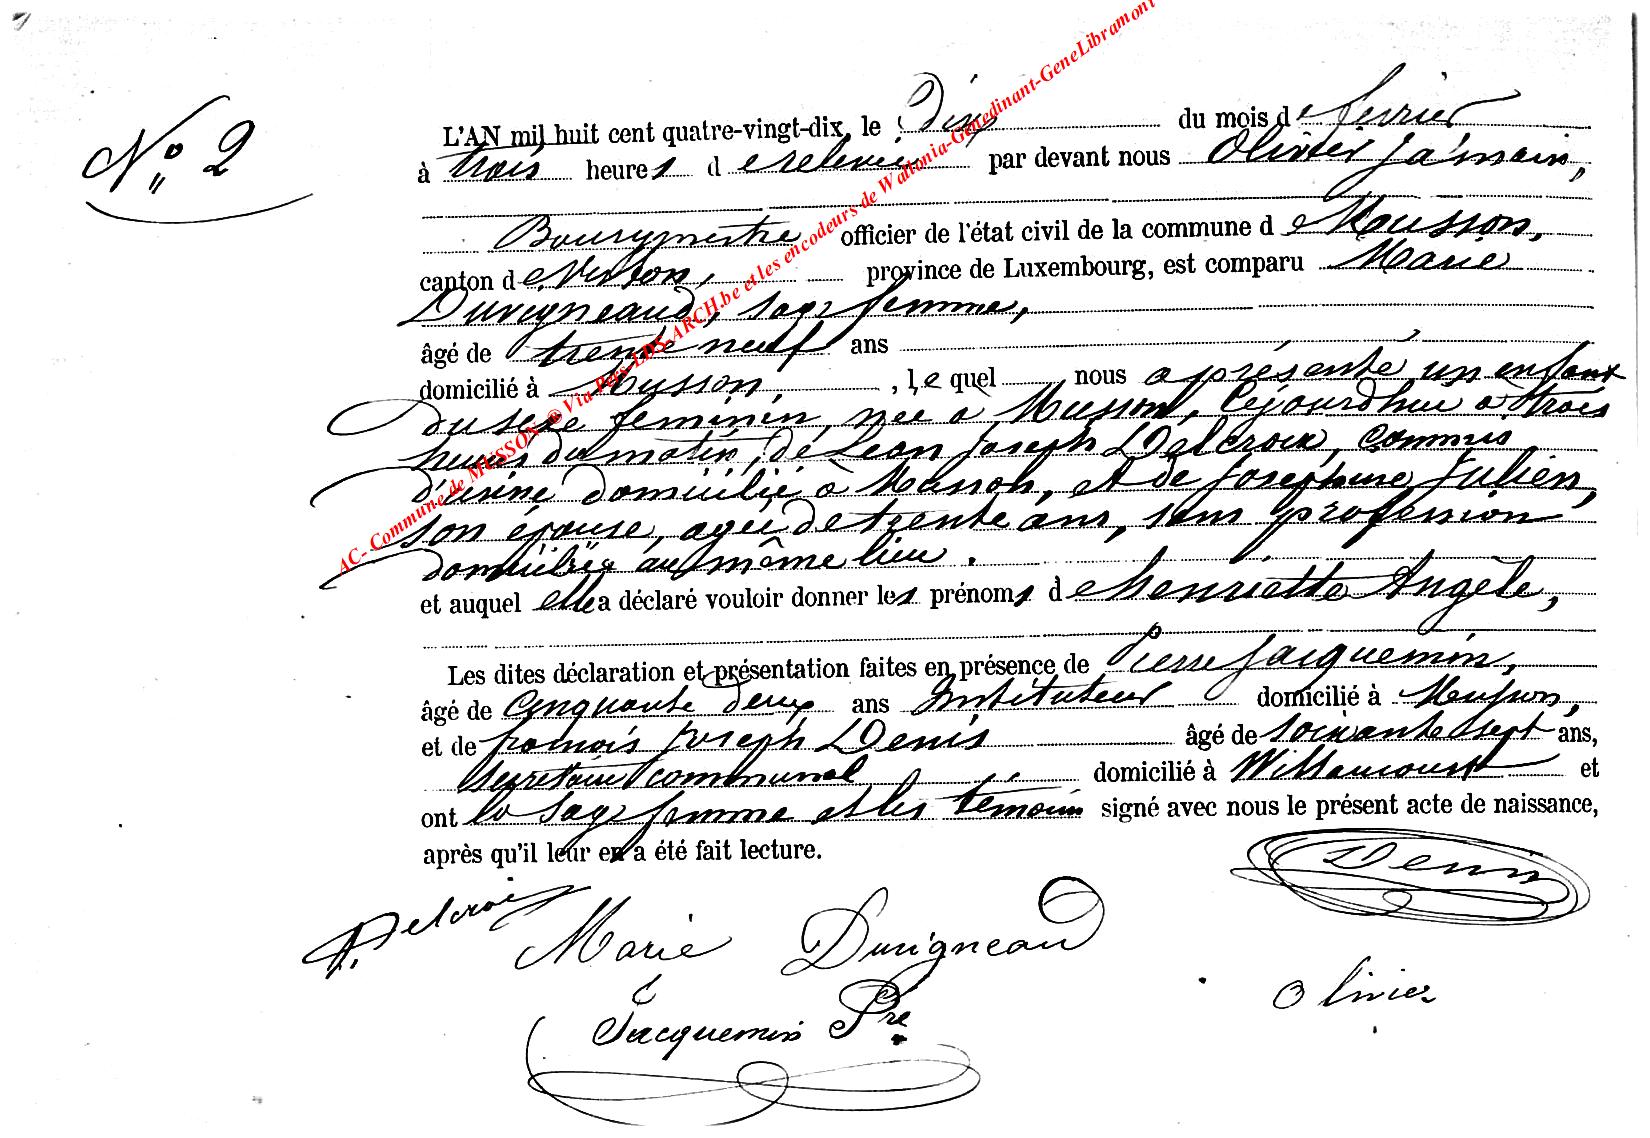 N° 2
L'AN mil huit cent quatre-vingt-dix, le dix du mois de février
à trois heures de relevée par devant nous Olivier Jamain,
Bourgmestre officier de l'état civil de la commune de Musson,
canton de Virton, province de Luxembourg, est comparu Marie
Duvigneaud, sage femme,
âgé de trente neuf ans
domicilié à Musson, , le quel nous a présenté un enfant
du sexe féminin, née à Musson, cejourd'hui à trois
heures du matin, de Léon Joseph Delcroix, commis
d'usine, domicilié à Musson, et de Joséphine Julien,
son épouse, agée de trente ans, sans profession
domiciliée au même lieu.
et auquel elle a déclaré vouloir donner les prénoms de Henriette Angèle,
Les dites déclaration et présentation faites en présence de Pierre Jacquemin,
âgé de Cinquante deux ans Instituteur domicilié à Musson,
et de francois Joseph Denis âgé de soixante sept ans,
secrétaire communal domicilié à Willancourt et
ont la sage femme et les témoins signé avec nous le présent acte de naissance,
après qu'il leur en a été fait lecture.
Denis
Delcroix
Marie Duvigneaud
Olivier
Jacquemin Pre
AC- Commune de MUSSON @ Via Pers-LDS-ARCH.be et les encodeurs de Wallonia-Genedinant-GeneLibramont